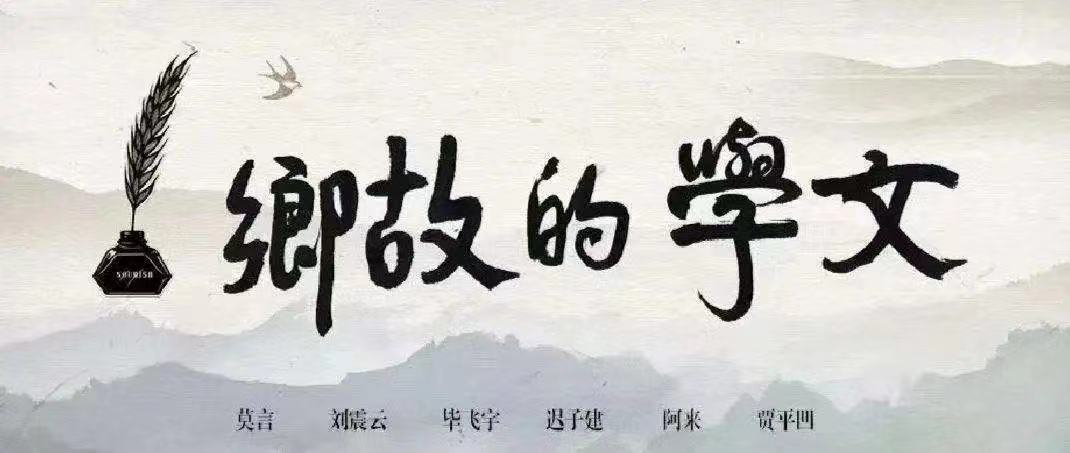 文學的故鄉
莫言 刘震云 毕飞宇 迟子建 阿来 贾平凹